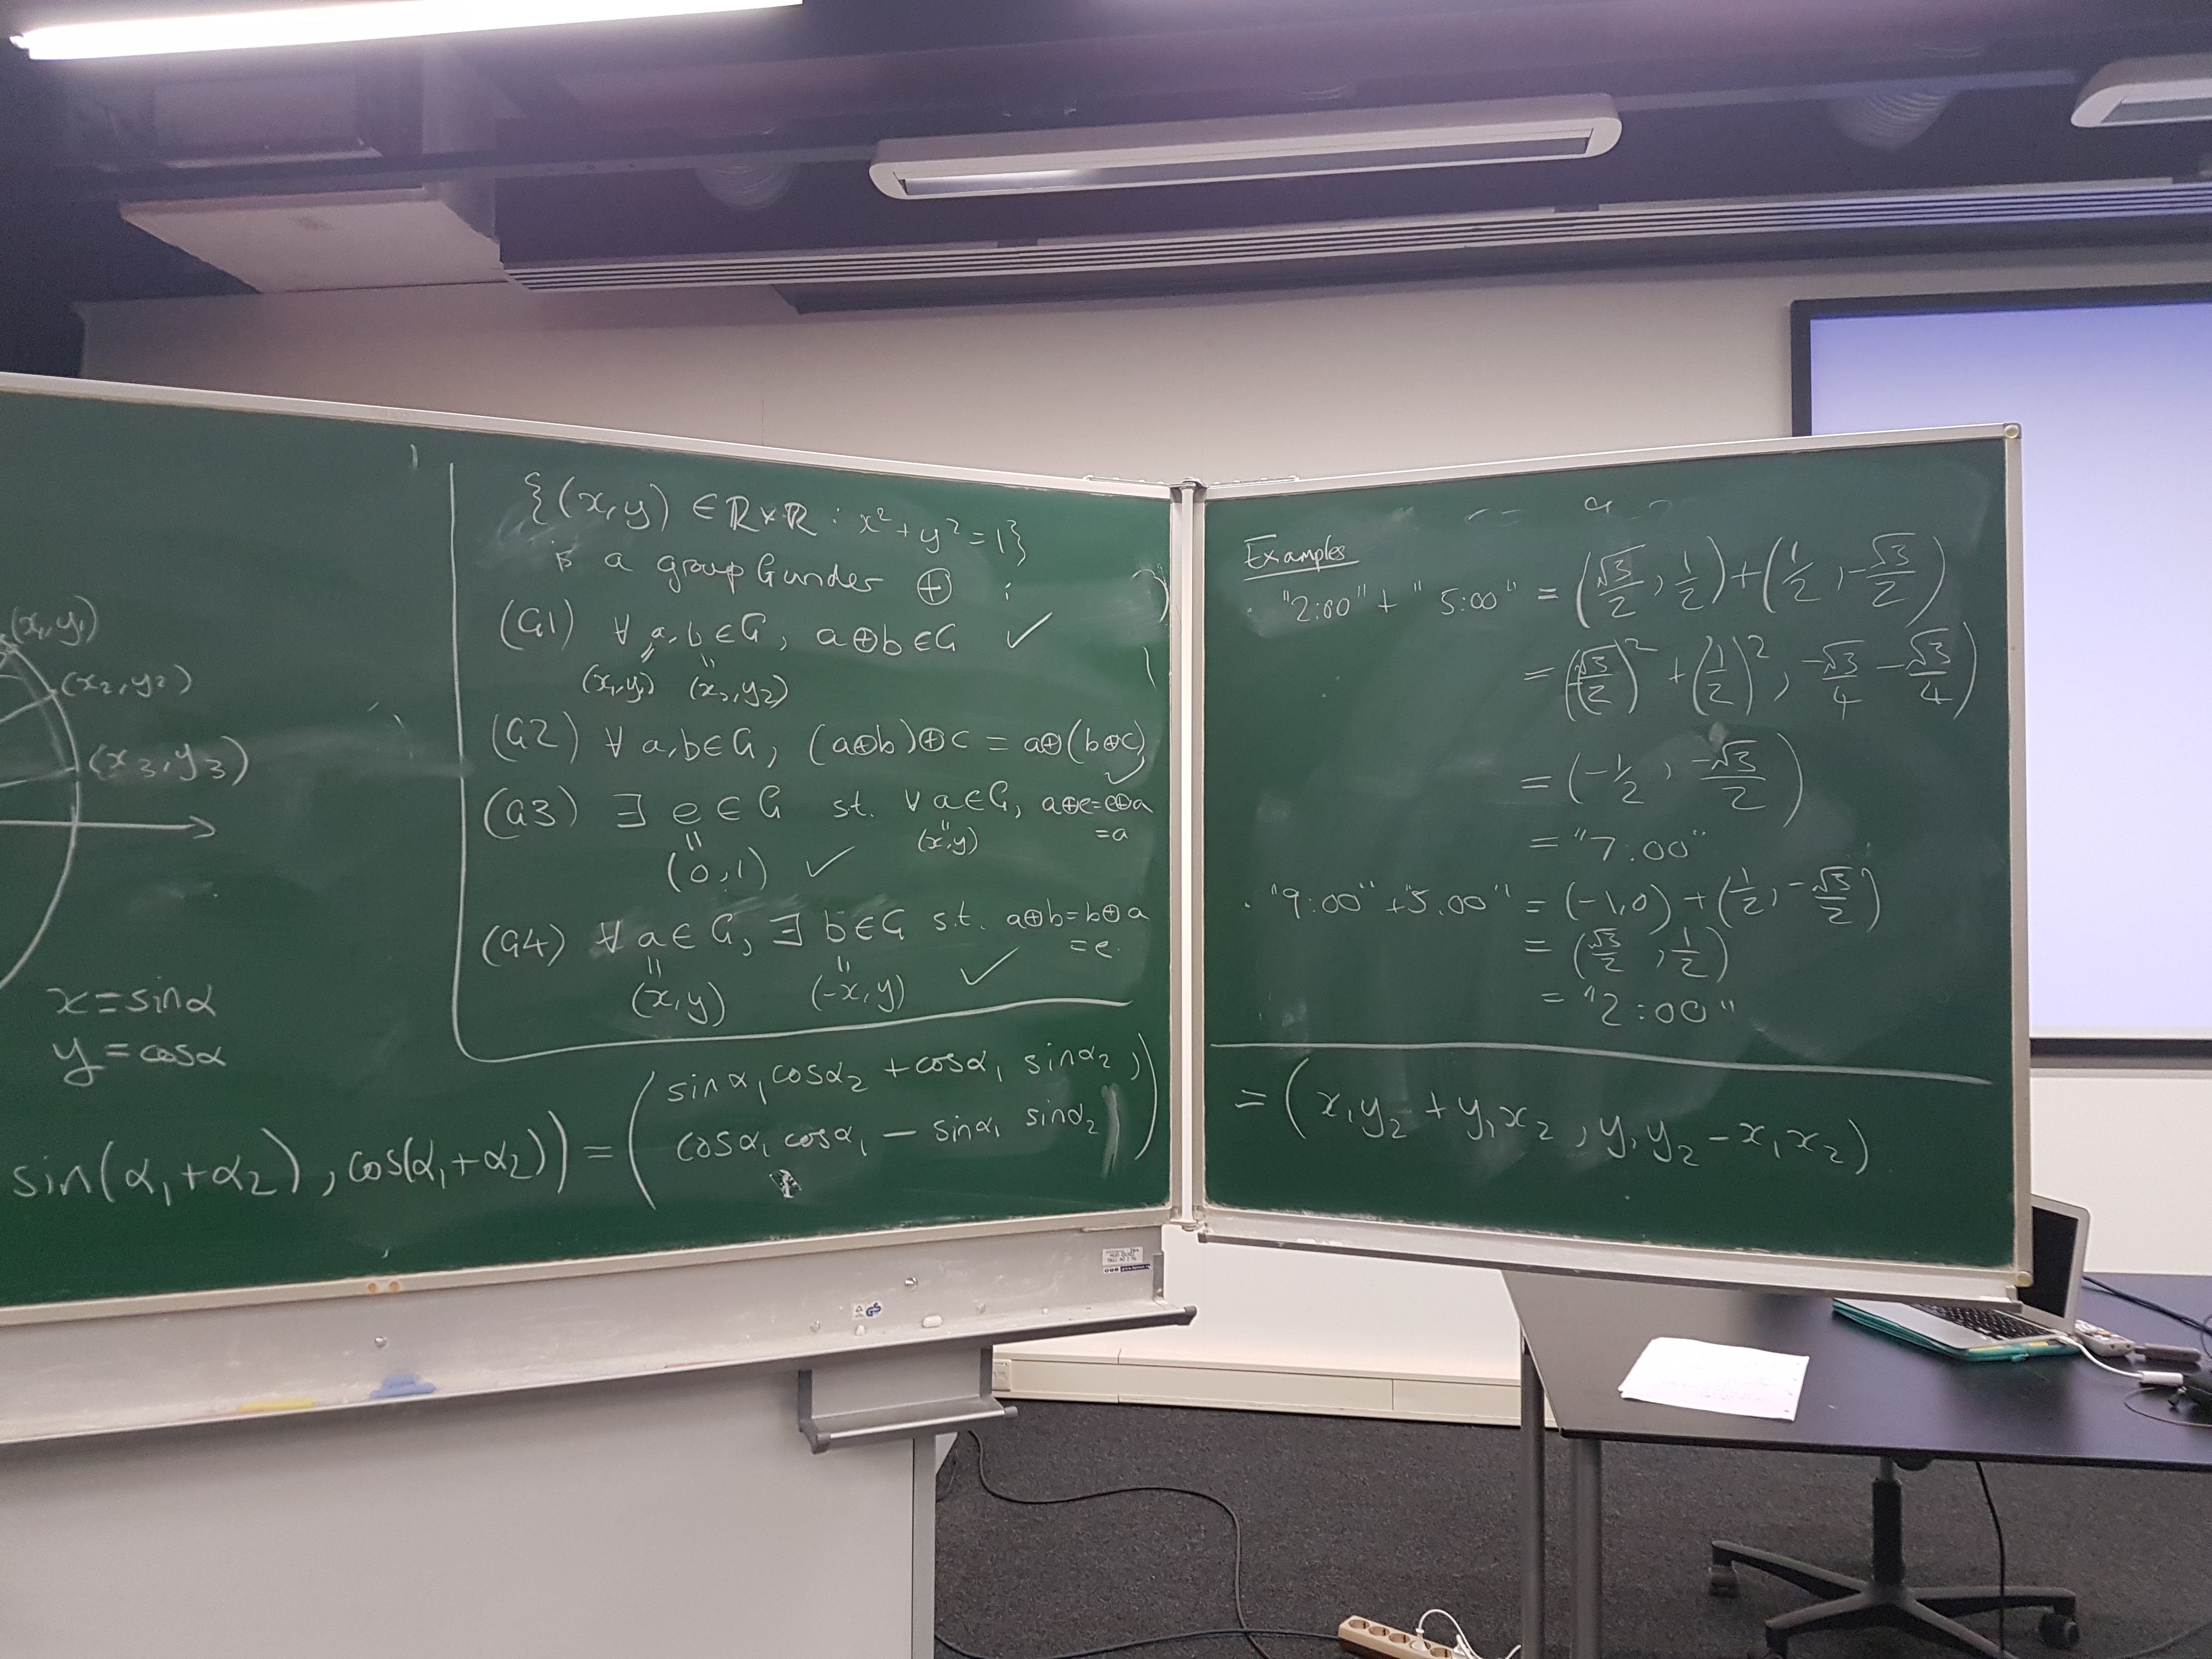 (x₁,y₁)
(x₂,y₂)
(x₃,y₃)
x=sinα
y=cosα
{(x,y) ∈ ℝ×ℝ : x²+y²=1}
is a group G under ⊕ :
(G1) ∀ a,b ∈ G, a⊕b ∈ G ✓
(x₁,y₁) (x₂,y₂)
(G2) ∀ a,b ∈ G, (a⊕b)⊕c = a⊕(b⊕c)
✓
(G3) ∃ e ∈ G st. ∀ a ∈ G, a⊕e=e⊕a
=a
(x,y)
(0,1) ✓
(G4) ∀ a ∈ G, ∃ b ∈ G s.t. a⊕b=b⊕a
=e.
(x,y) (-x,y) ✓
sin(α₁+α₂), cos(α₁+α₂)) = (sinα₁cosα₂ + cosα₁ sinα₂,
cosα₁ cosα₁ − sinα₁ sinα₂)
Examples
· "2:00" + "5:00" = (√3/2, 1/2) + (1/2, -√3/2)
= ((√3/2)² + (1/2)², -√3/4 - √3/4)
= (-1/2, -√3/2)
= "7:00"
· "9:00" + "5:00" = (-1,0) + (1/2, -√3/2)
= (√3/2, 1/2)
= "2:00"
= (x₁y₂ + y₁x₂, y₁y₂ − x₁x₂)